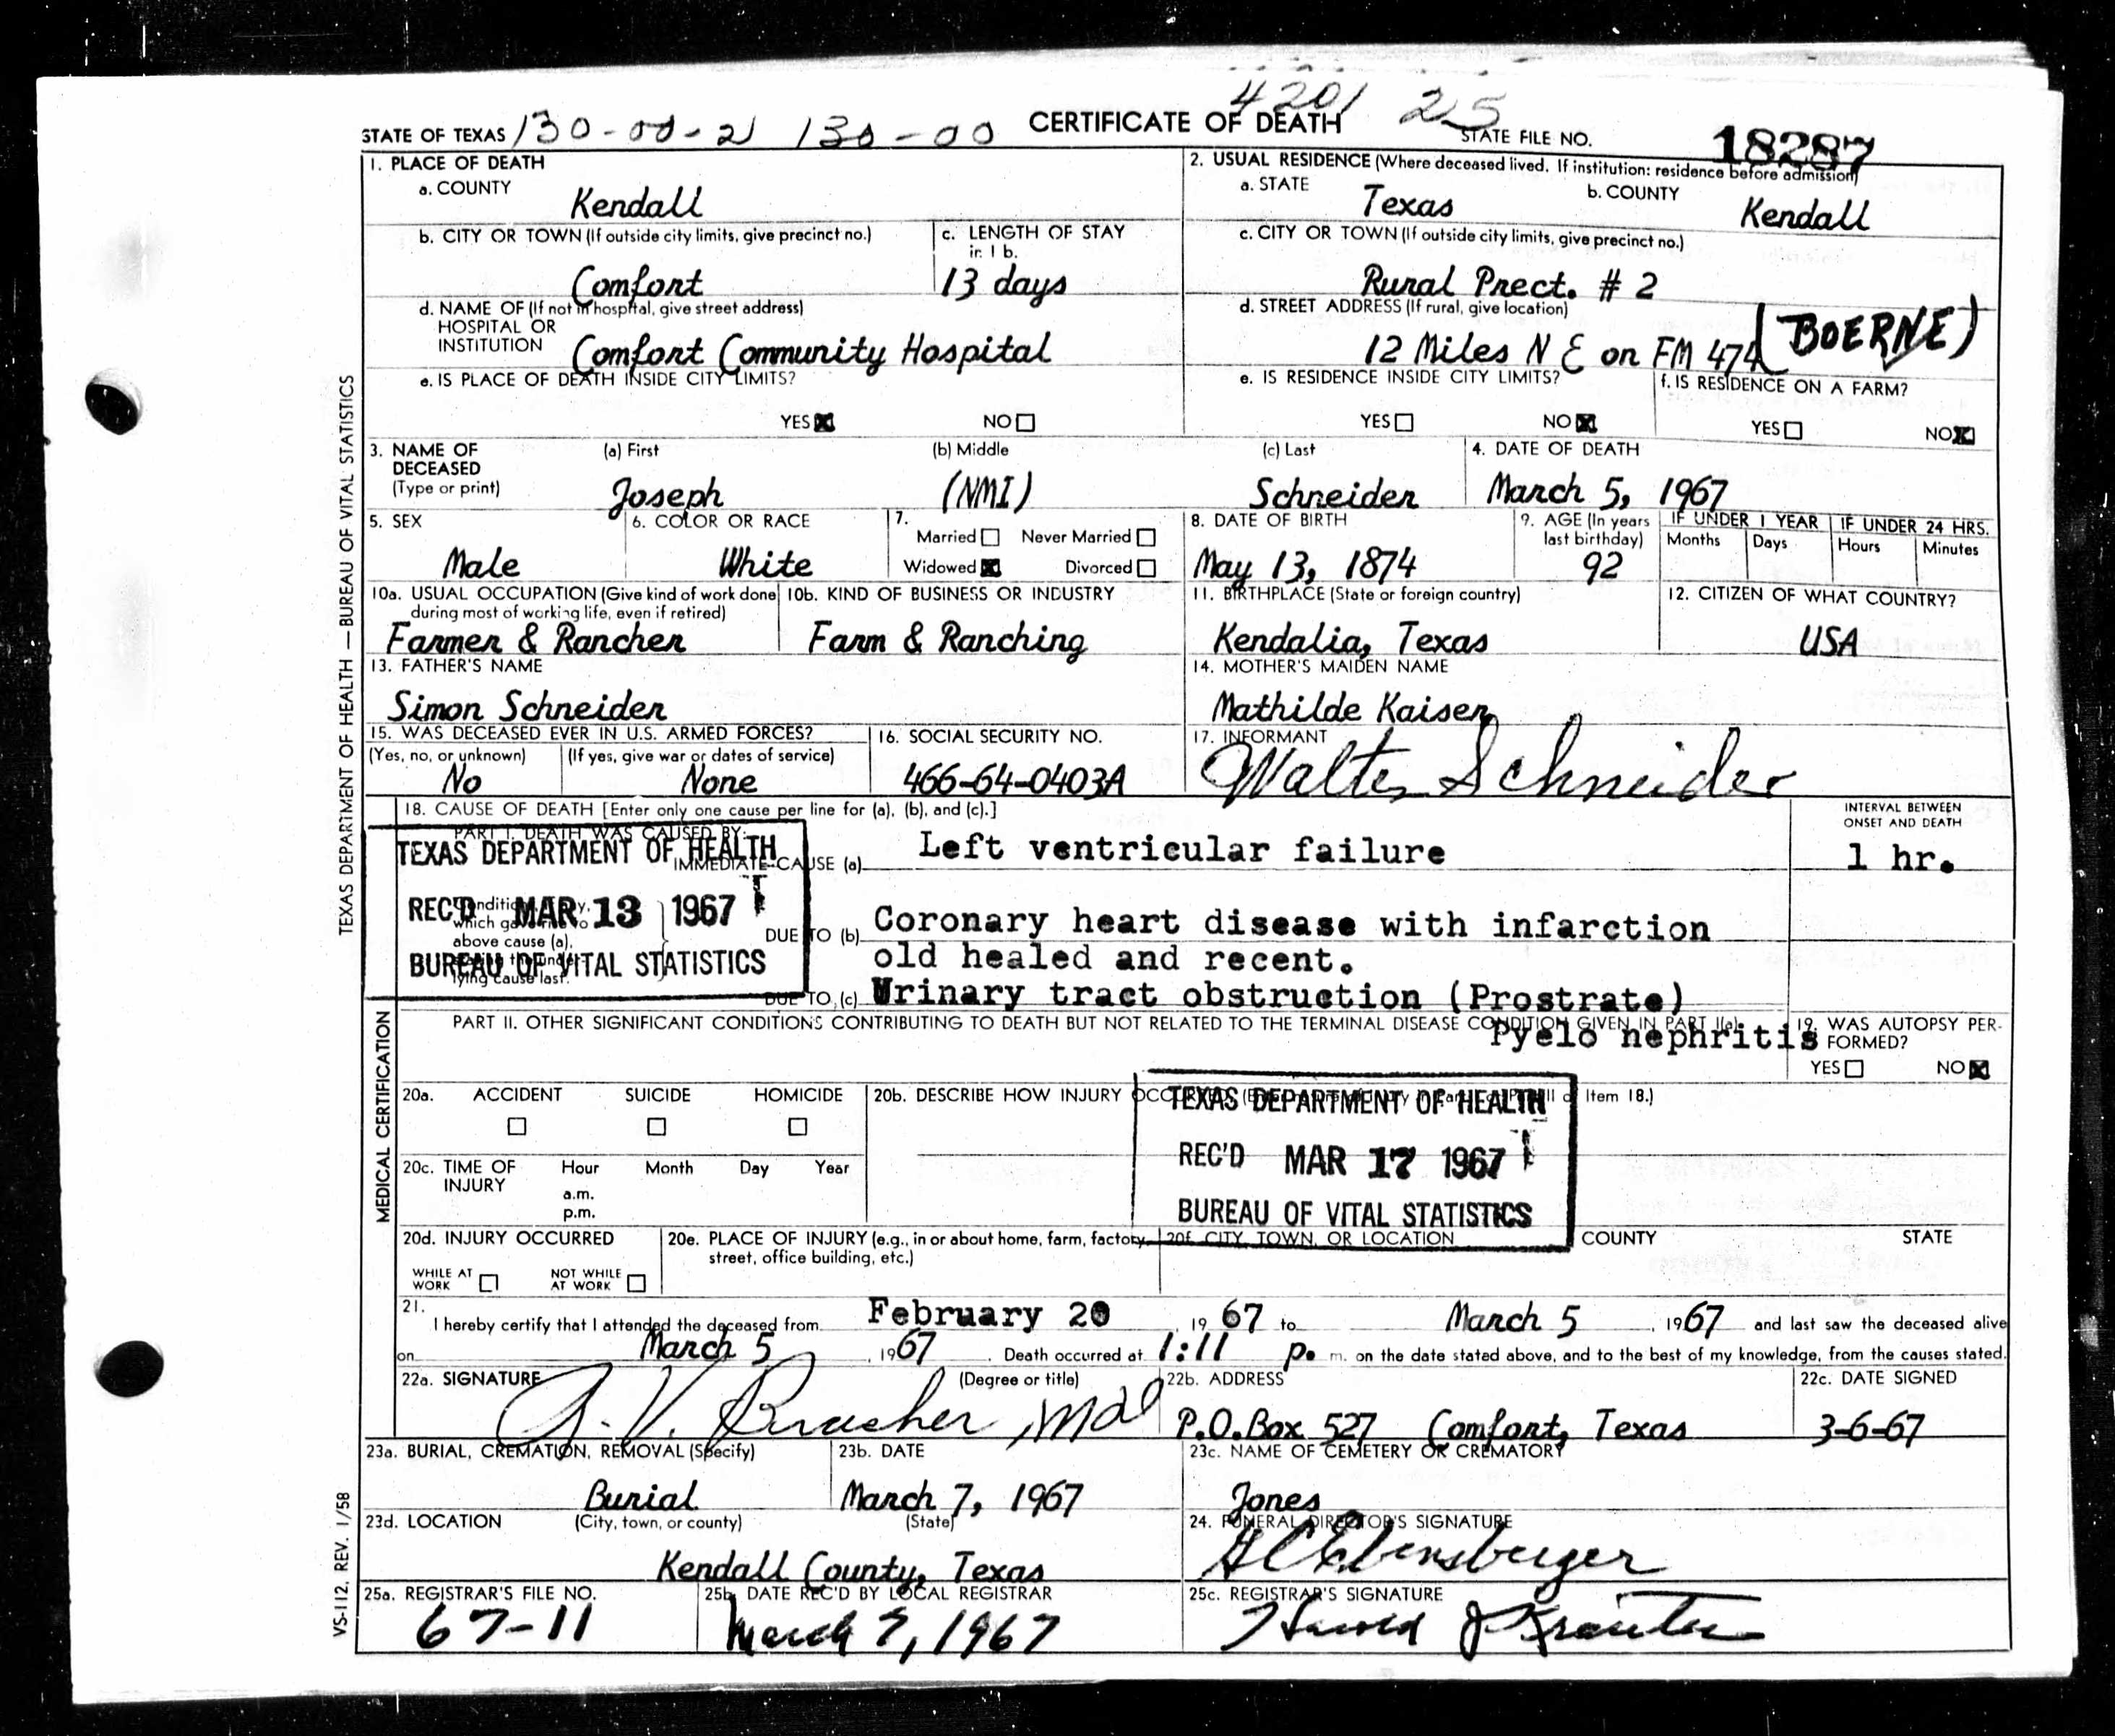 4201 25
STATE OF TEXAS 130-00-2 130-00 CERTIFICATE OF DEATH STATE FILE NO. 18287
1. PLACE OF DEATH
a. COUNTY Kendall
2. USUAL RESIDENCE (Where deceased lived. If institution: residence before admission)
a. STATE Texas b. COUNTY Kendall
b. CITY OR TOWN (If outside city limits, give precinct no.) Comfort
c. LENGTH OF STAY in 1 b. 13 days
c. CITY OR TOWN (If outside city limits, give precinct no.) Rural Prect. # 2
d. NAME OF (If not in hospital, give street address)
HOSPITAL OR
INSTITUTION Comfort Community Hospital
d. STREET ADDRESS (If rural, give location)
12 Miles N E on FM 474 (BOERNE)
e. IS PLACE OF DEATH INSIDE CITY LIMITS?
YES NO
e. IS RESIDENCE INSIDE CITY LIMITS?
YES NO
f. IS RESIDENCE ON A FARM?
YES NO
3. NAME OF DECEASED (Type or print)
(a) First (b) Middle (c) Last
Joseph (NMI) Schneider
4. DATE OF DEATH
March 5, 1967
5. SEX
Male
6. COLOR OR RACE
White
7.
Married Never Married
Widowed Divorced
8. DATE OF BIRTH
May 13, 1874
9. AGE (In years last birthday)
92
IF UNDER 1 YEAR IF UNDER 24 HRS.
Months Days Hours Minutes
10a. USUAL OCCUPATION (Give kind of work done during most of working life, even if retired)
Farmer & Rancher
10b. KIND OF BUSINESS OR INDUSTRY
Farm & Ranching
11. BIRTHPLACE (State or foreign country)
Kendalia, Texas
12. CITIZEN OF WHAT COUNTRY?
USA
13. FATHER'S NAME
Simon Schneider
14. MOTHER'S MAIDEN NAME
Mathilde Kaiser
15. WAS DECEASED EVER IN U.S. ARMED FORCES?
(Yes, no, or unknown) (If yes, give war or dates of service)
No None
16. SOCIAL SECURITY NO.
466-64-0403A
17. INFORMANT
Walter Schneider
18. CAUSE OF DEATH [Enter only one cause per line for (a), (b), and (c).]
INTERVAL BETWEEN
ONSET AND DEATH
PART I. DEATH WAS CAUSED BY:
IMMEDIATE CAUSE (a) Left ventricular failure 1 hr.
TEXAS DEPARTMENT OF HEALTH
REC'D MAR 13 1967
BUREAU OF VITAL STATISTICS
which gave rise to
above cause (a),
lying cause last.
DUE TO (b) Coronary heart disease with infarction
old healed and recent.
DUE TO, (c) Urinary tract obstruction (Prostrate)
PART II. OTHER SIGNIFICANT CONDITIONS CONTRIBUTING TO DEATH BUT NOT RELATED TO THE TERMINAL DISEASE CONDITION GIVEN IN PART I(a)
Pyelo nephritis
19. WAS AUTOPSY PERFORMED?
YES NO
20a. ACCIDENT SUICIDE HOMICIDE
20b. DESCRIBE HOW INJURY OCCURRED Item 18.)
TEXAS DEPARTMENT OF HEALTH
REC'D MAR 17 1967
BUREAU OF VITAL STATISTICS
20c. TIME OF INJURY
Hour Month Day Year
a.m.
p.m.
20d. INJURY OCCURRED
WHILE AT WORK NOT WHILE AT WORK
20e. PLACE OF INJURY (e.g., in or about home, farm, factory, street, office building, etc.)
20f. CITY, TOWN, OR LOCATION COUNTY STATE
21.
I hereby certify that I attended the deceased from February 20, 19 67 to March 5, 1967 and last saw the deceased alive
on March 5, 1967. Death occurred at 1:11 p. m. on the date stated above, and to the best of my knowledge, from the causes stated.
22a. SIGNATURE (Degree or title)
MD
22b. ADDRESS
P.O.Box 527 Comfort, Texas
22c. DATE SIGNED
3-6-67
23a. BURIAL, CREMATION, REMOVAL (Specify)
Burial
23b. DATE
March 7, 1967
23c. NAME OF CEMETERY OR CREMATORY
Jones
23d. LOCATION (City, town, or county) (State)
Kendall County, Texas
24. FUNERAL DIRECTOR'S SIGNATURE
25a. REGISTRAR'S FILE NO.
67-11
25b. DATE REC'D BY LOCAL REGISTRAR
March 7, 1967
25c. REGISTRAR'S SIGNATURE
TEXAS DEPARTMENT OF HEALTH — BUREAU OF VITAL STATISTICS
MEDICAL CERTIFICATION
VS-112, REV. 1/58